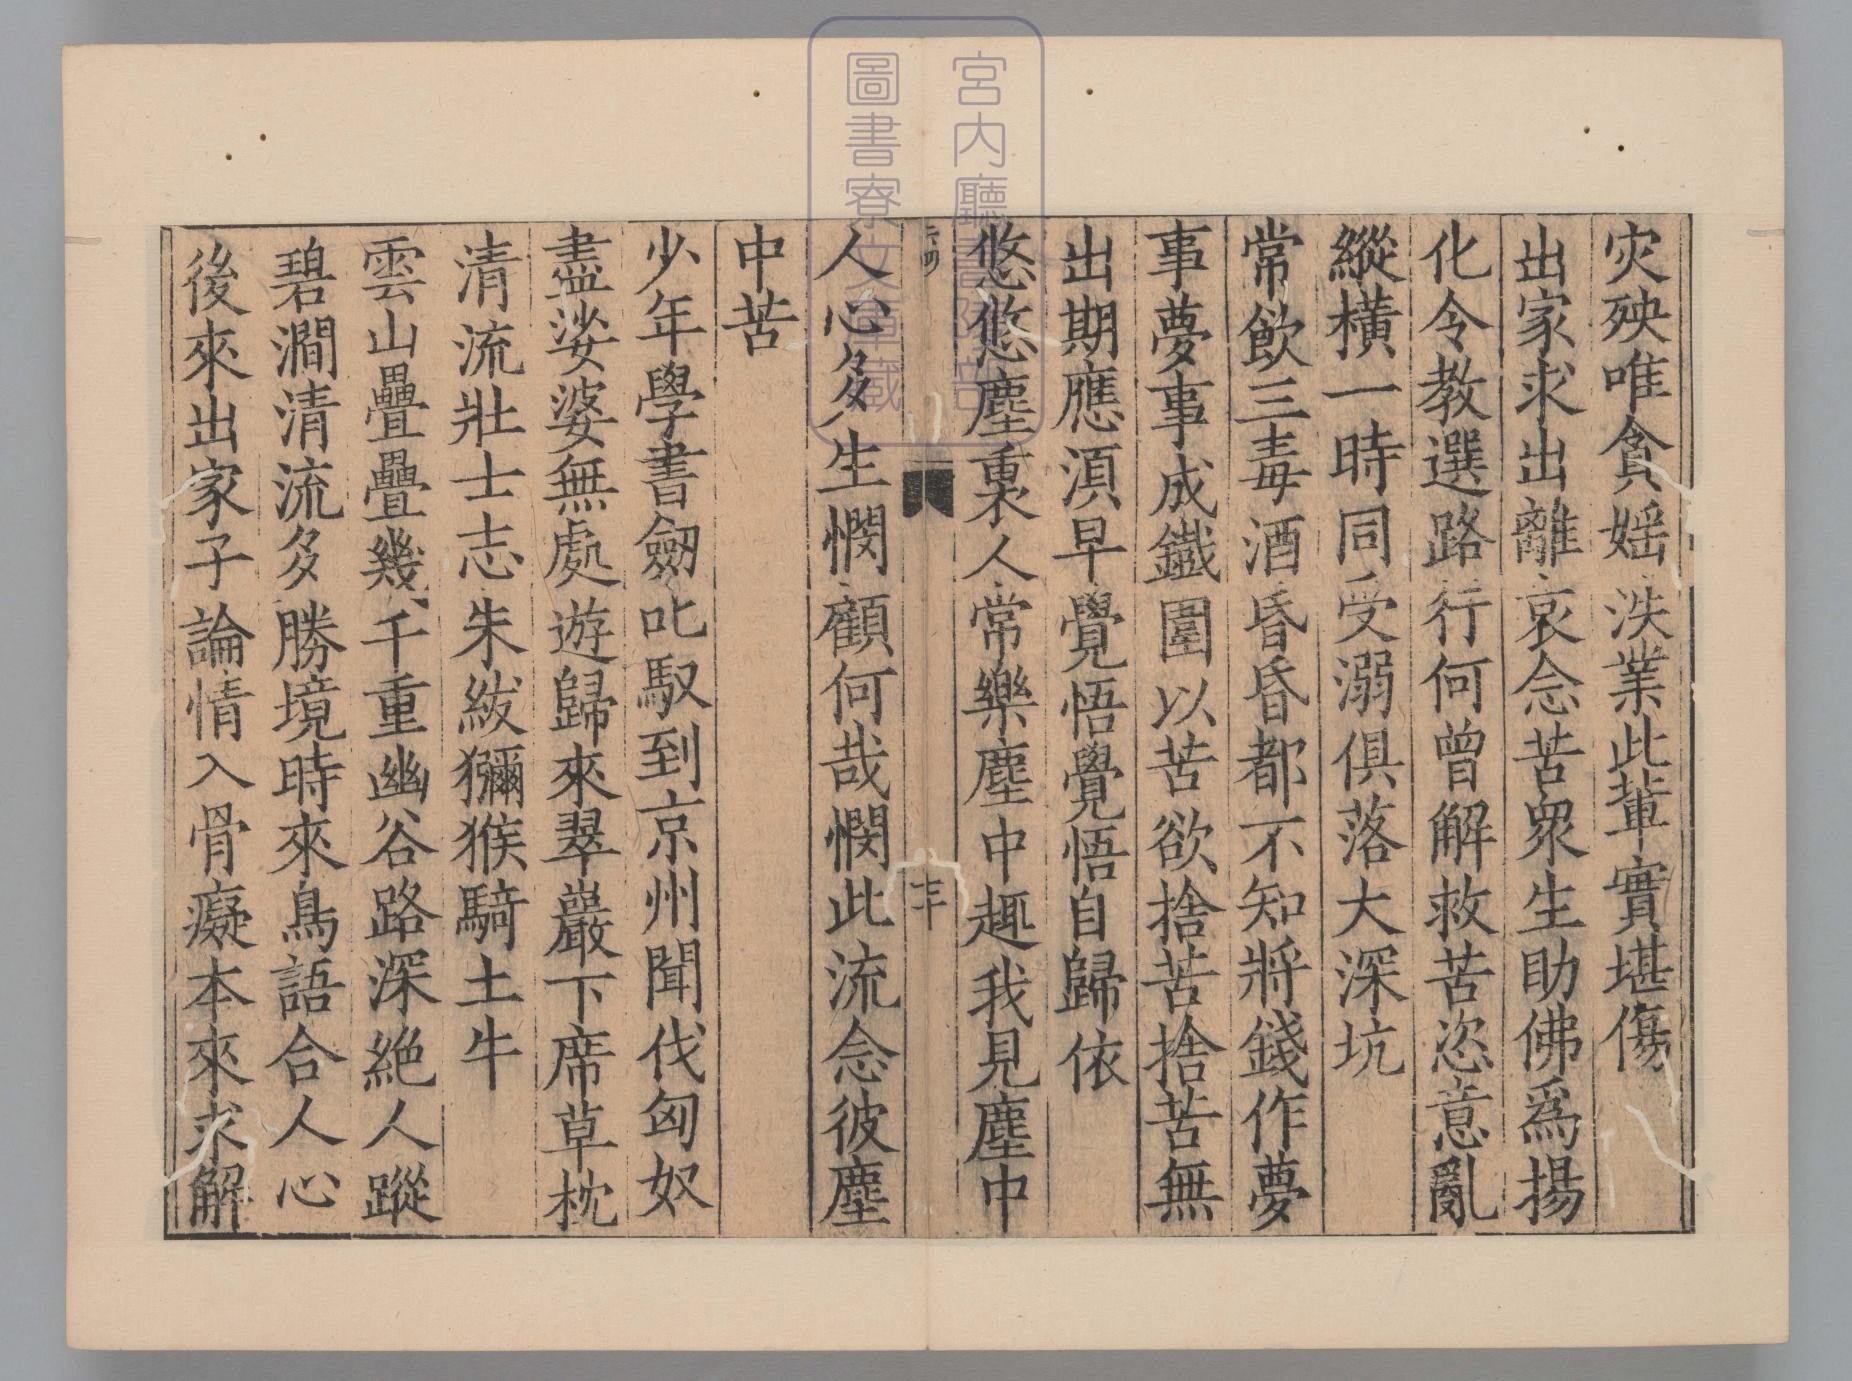 灾殃唯貪婬泆業此輩實堪傷
出家求出離哀念苦眾生助佛爲揚
化令教選路行何曾解救苦恣意亂
縱橫一時同受溺俱落大深坑
常飲三毒酒昏昏都不知將錢作夢
事夢事成鐵圍以苦欲捨苦捨苦無
出期應湏早覺悟覺悟自歸依
悠悠塵裏人常樂塵中趣我見塵中
人心多生憫顧何哉憫此流念彼塵
中苦
少年學書劒叱馭到京州聞伐匈奴
盡婆娑無處遊歸來翠巖下席草枕
清流壯士志朱紱獼猴騎土牛
雲山疊疊幾千重幽谷路深絶人蹤
碧澗清流多勝境時來鳥語合人心
後來出家子論情入骨癡本來求解
宮内廳書陵部
圖書寮文庫藏